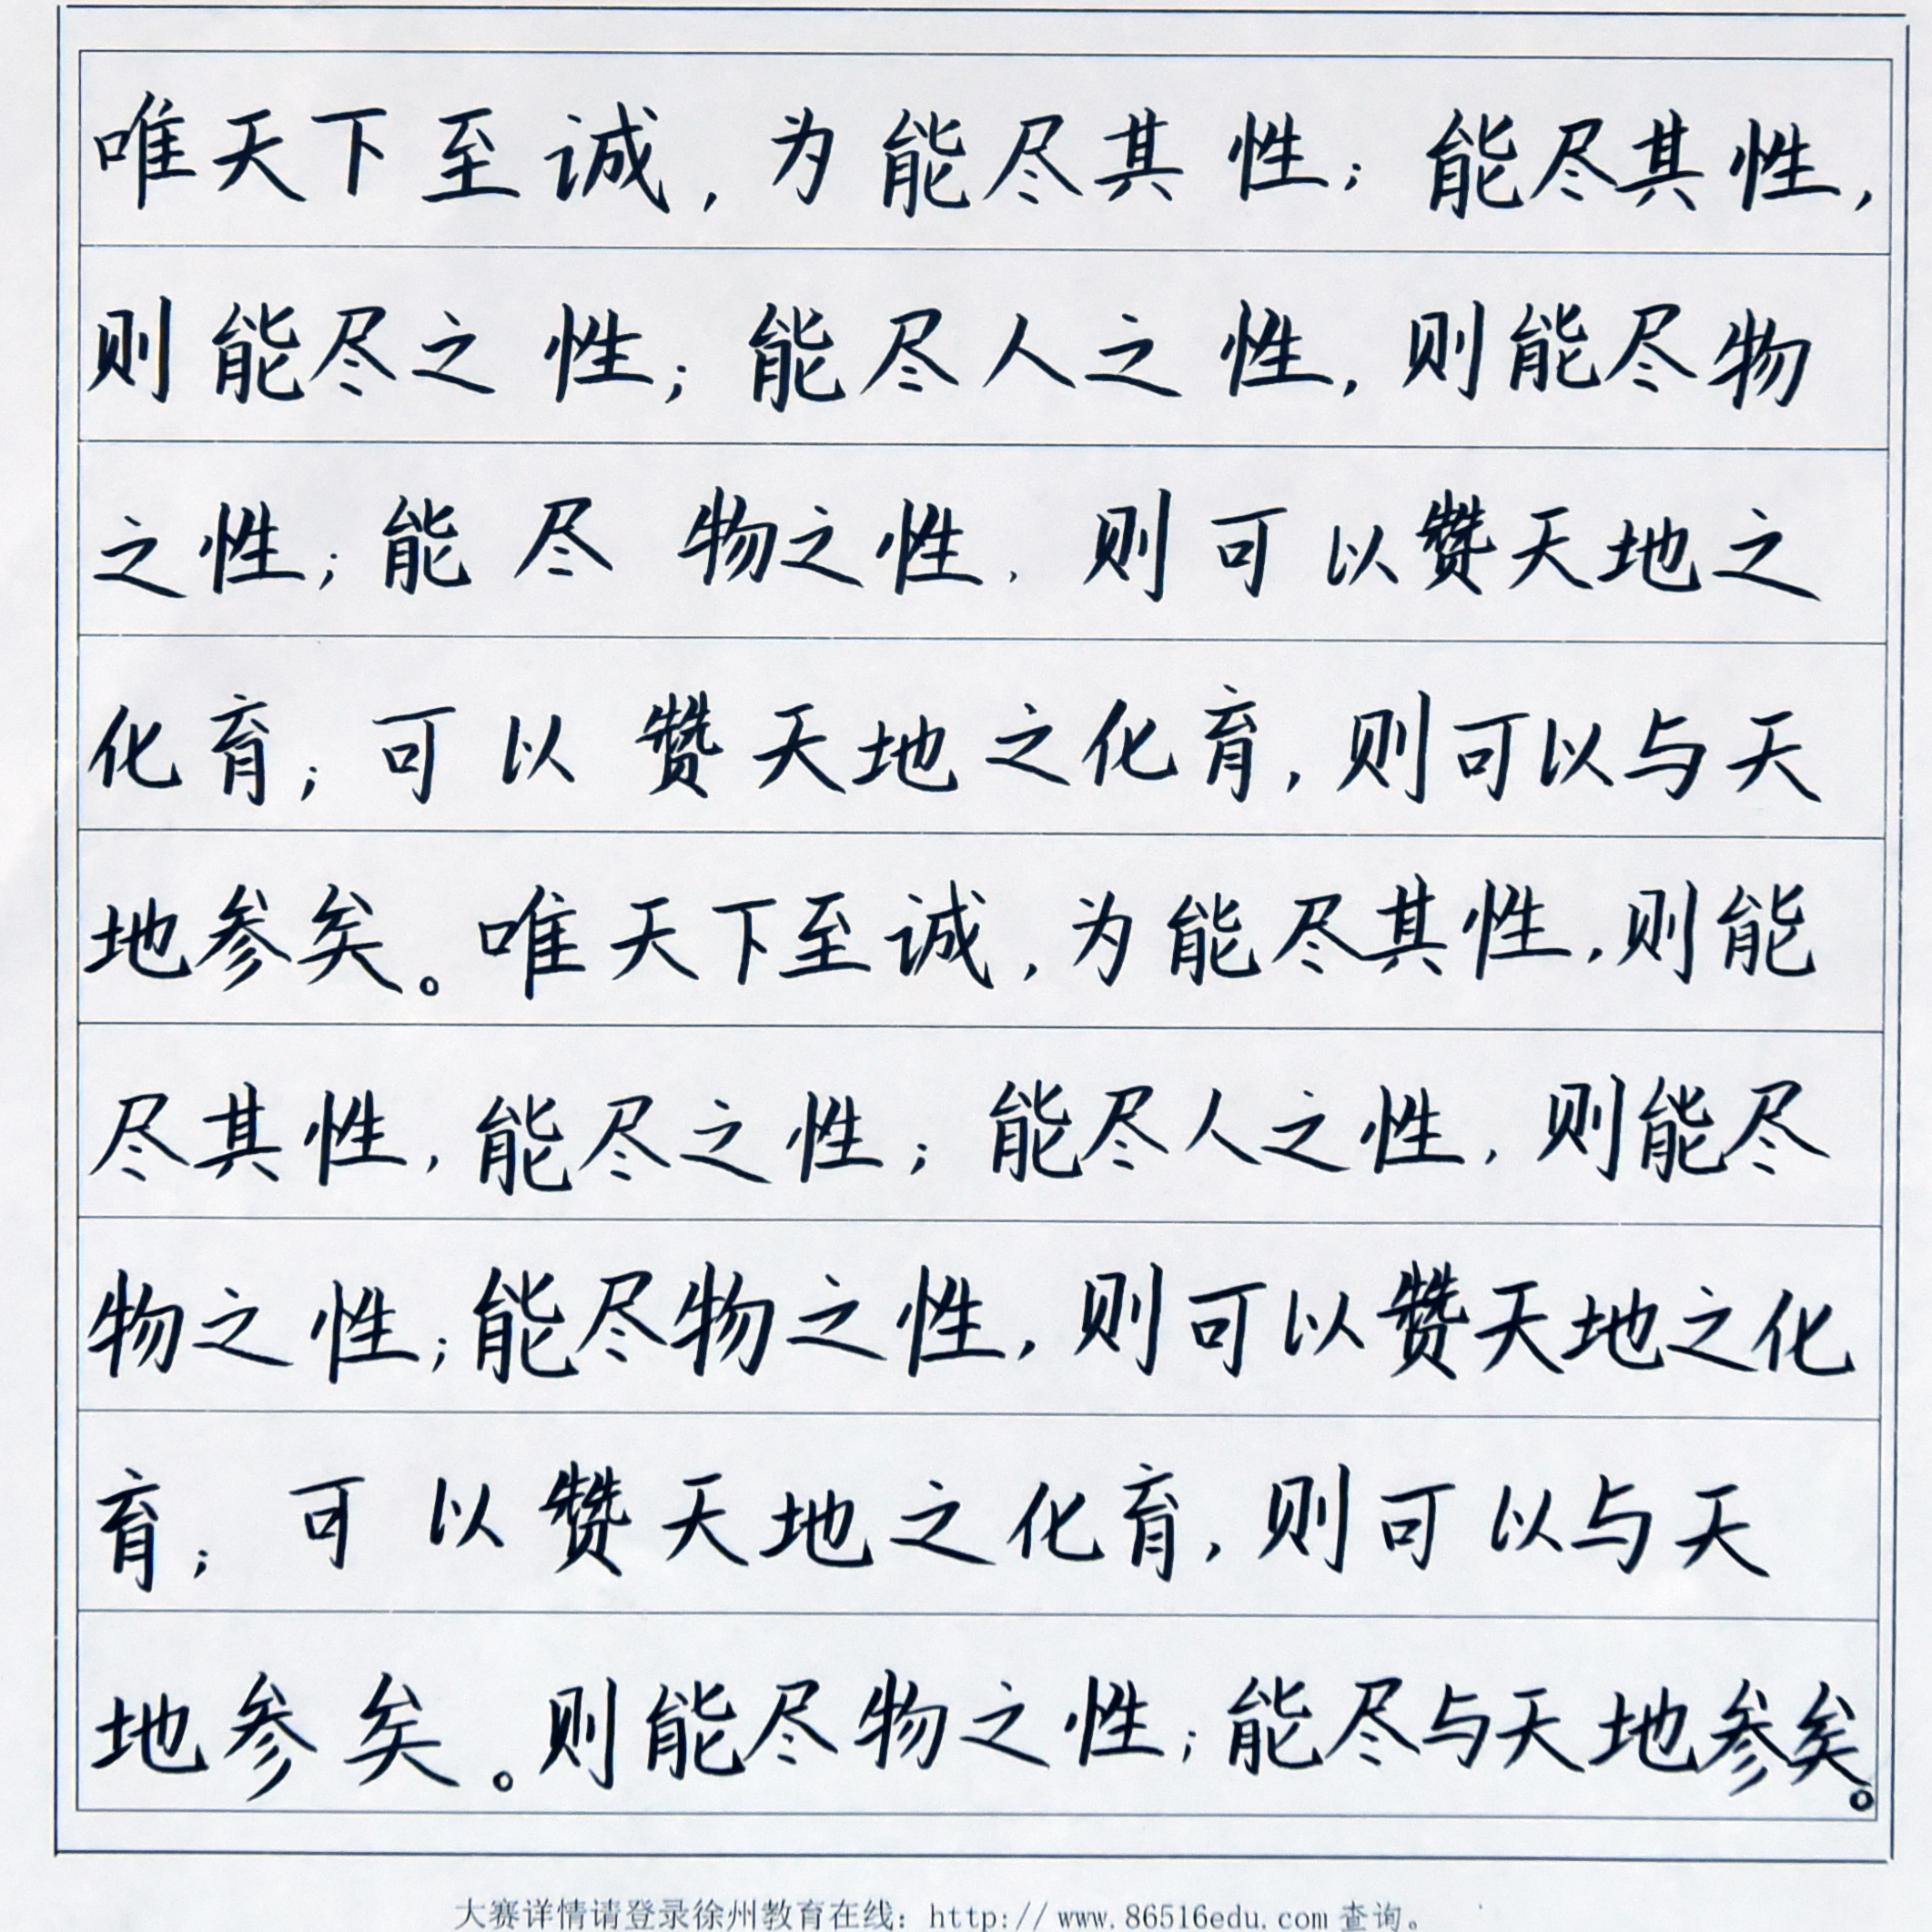 唯天下至诚，为能尽其性；能尽其性，
则能尽之性；能尽人之性，则能尽物
之性；能尽物之性，则可以赞天地之
化育；可以赞天地之化育，则可以与天
地参矣。唯天下至诚，为能尽其性，则能
尽其性，能尽之性；能尽人之性，则能尽
物之性；能尽物之性，则可以赞天地之化
育；可以赞天地之化育，则可以与天
地参矣。则能尽物之性；能尽与天地参矣。
大赛详情请登录徐州教育在线：http://www.86516edu.com查询。